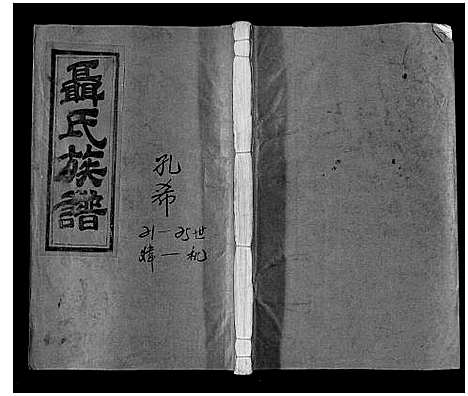 聶氏族譜
孔希
21—25世
煒—机